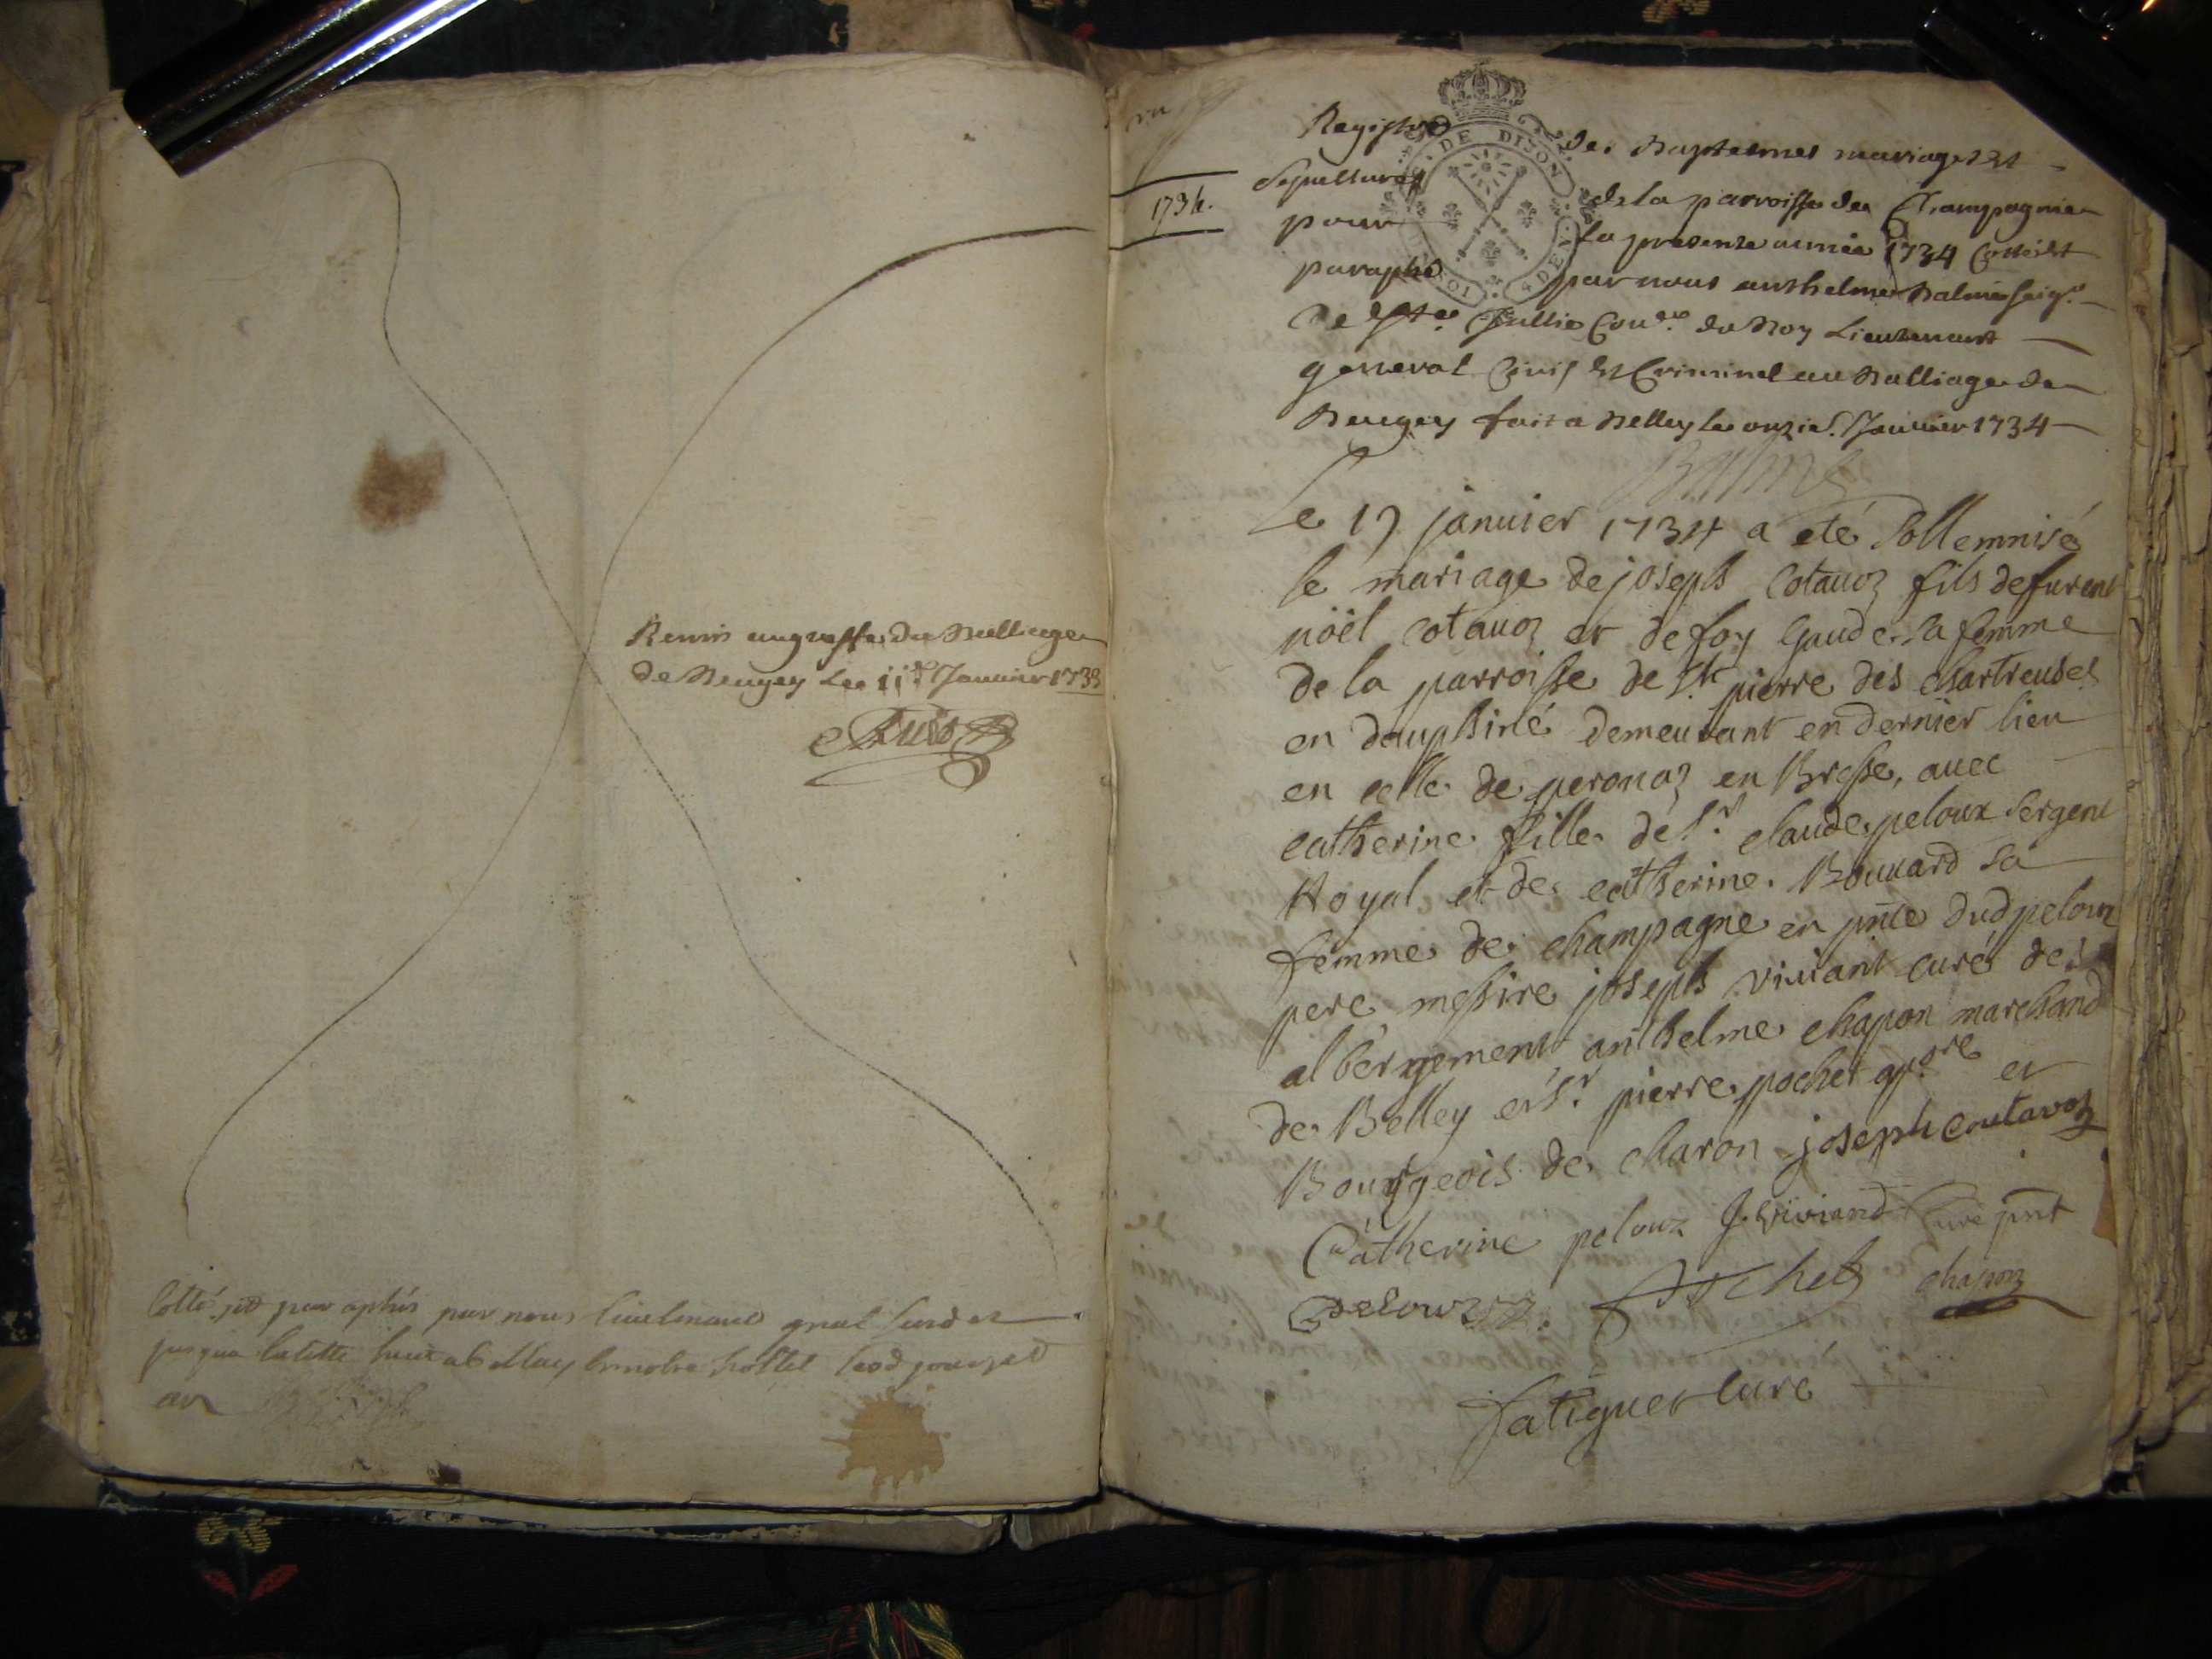 Remis au greffe du Bailliage
de Beugey Le 11e Janvier 1733
Cotté et paraphés par nous lieutenant gnal
jusqua
1734.
Registre des Baptesmes mariages et
Sepultures de la parroisse de Champagne
pour la presente année 1734 Cotté et
paraphé par nous anthelme Balme seigr
De Ste Jullie Coner du Roy Lieutenant
general Civil et Criminel au Balliage de
Beugey fait a Belley le onzie. Janvier 1734
Balme
DE DIJON
Le 17 januier 1734 a eté sollemnisé
le mariage de joseph Cotauoz fils de furent
nöèl Cotauoz et de foy Gaude sa femme
de la parroisse de St pierre des chartreuses
en dauphiné demeurant en dernier lieu
en celle de peronaz en Bresse, auec
catherine fille de Sr claude peloux sergent
Royal et de catherine Bouuard sa
femme de champagne en pnce dud peloux
pere messire joseph viuiant curé de l
albergement anthelme chapon marchand
de Belley et Sr pierre pochet et
Bourgeois de charon joseph coutavoz
Catherine peloux J. Viviand Curé pnt
peloux pochet chapon
fatiguet Curé